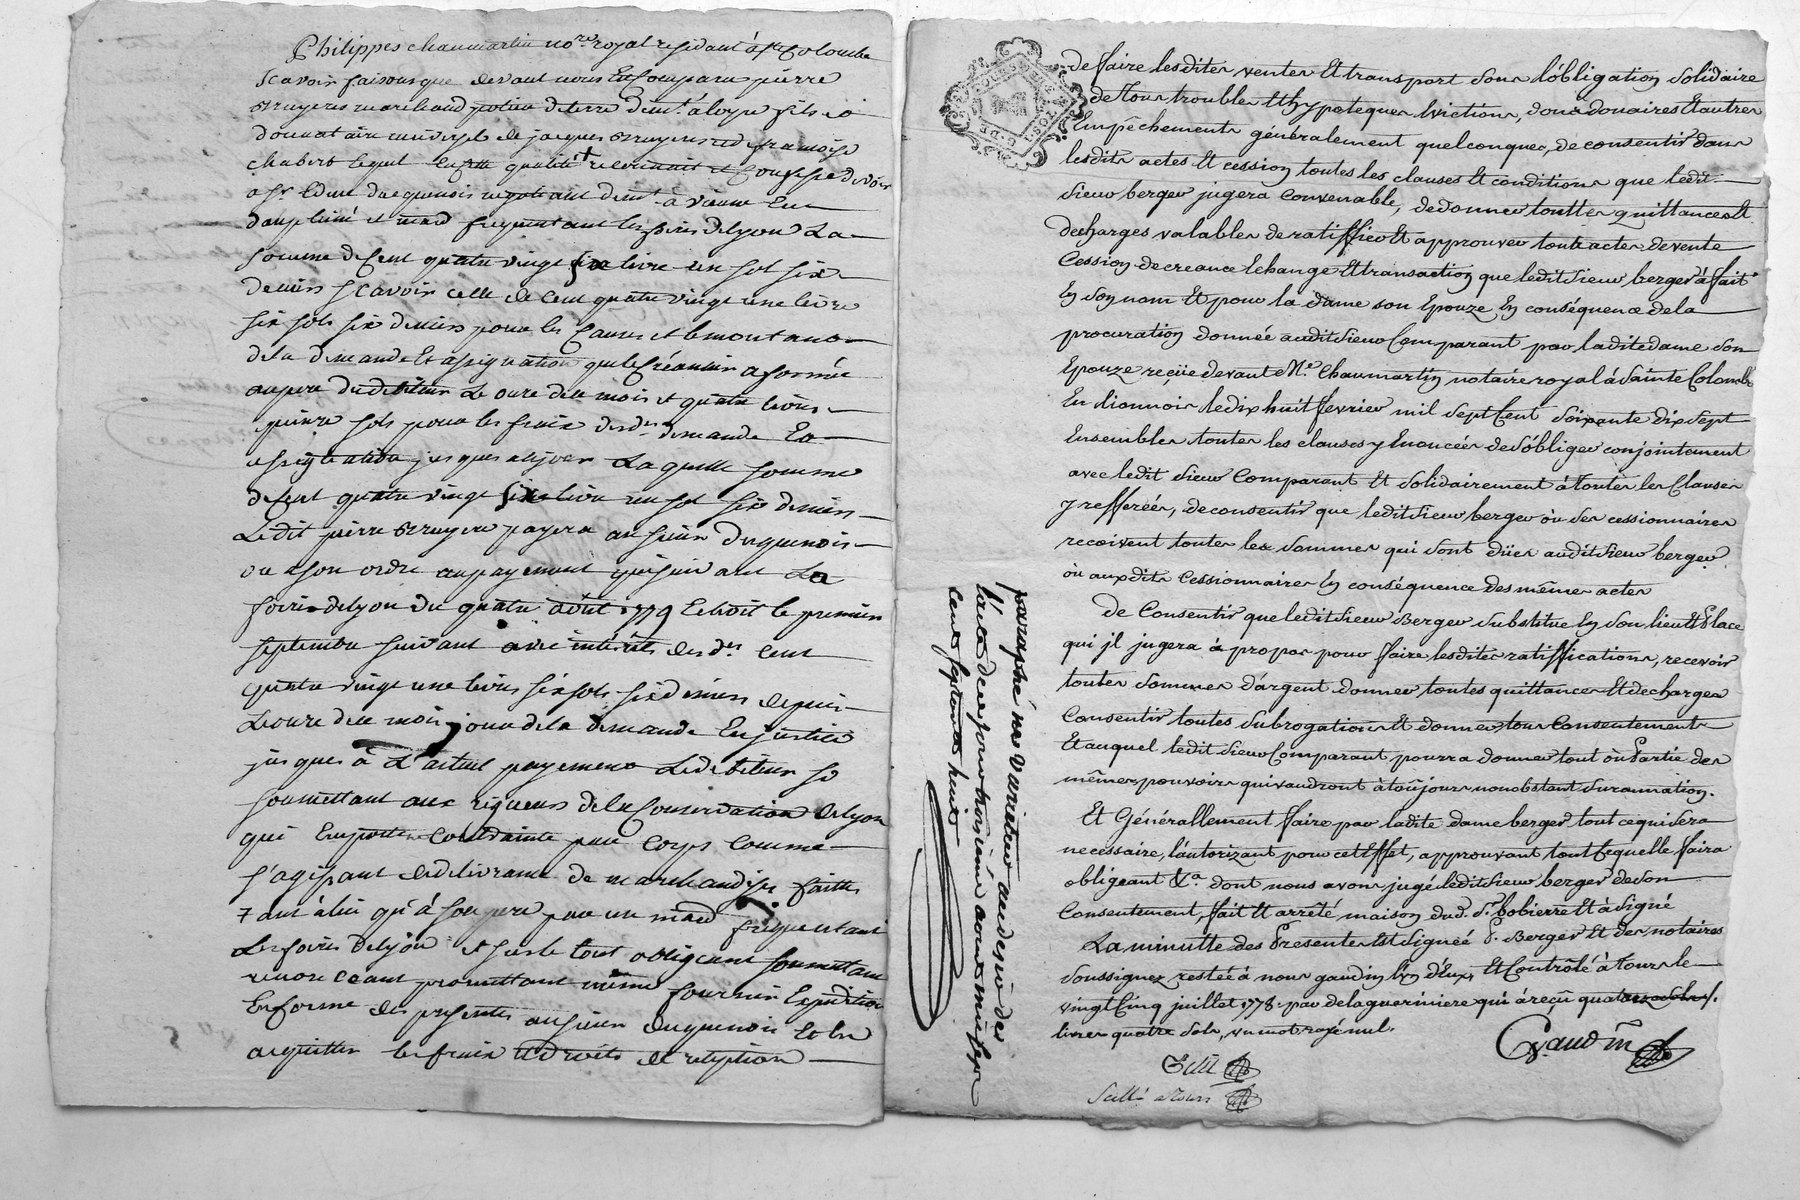 Philippes chaumartin no.re royal residant à ste Colombe
scavoir faisons que devant nous En Comparus pierre
Bruyeres marchand potier de terre dem.t à loyre fils
donnataire universel de jacques Bruyeres et de francoise
chabert lequel En cette qualité reconnoit et Confesse devoir
a Sr. Edme Duquenois negotiant dem.t à vienne En
dauphiné et mard frequentant les foires de lyon La
somme de Cent quatre vingt six livre un sol six
deniers scavoir celle de Cent quatre vingt une livre
six sols six deniers pour les Causes et le montant
de la demande Et assignation que le Créancier a formée
au pere du debiteur Le onze de ce mois et quatre livres
quinze sols pour les frais desd.es demande Et
assignation jusques à ce jour La quelle somme
de Cent quatre vingt six livre un sol six deniers
Ledit pierre Bruyere payera au sieur Duquenois
ou a son ordre au payement qui suivant La
foire de lyon du quatre août 1779 Echoit le premier
septembre suivant avec interêts desd.es Cent
quatre vingt une livres six sols six deniers depuis
Le onze de ce mois jour de la demande En justice
jusques à L'actuel payement Le debiteur se
soumettant aux rigueurs de la Conservation de lyon
qui Emporte Contrainte par Corps Comme
s'agissant de delivrance de marchandises faittes
tant à lui qu'à son pere par un mard frequentant
Les foires de lyon et sur le tout obligeant soumettant
renonceant promettant même fournir Expedition
En forme des presentes au sieur duquenois Et lui
acquitter les frais et droits de reception
de faire lesdites ventes Et transport sous l'obligation solidaire
de tous troubles Et hypoteques Evictions, dons douaires Et autres
Empêchements généralement quelconques, de consentir dans
lesdits actes Et cession toutes les clauses Et conditions que ledit
sieur berger jugera convenable, de donner touttes quittances Et
decharges valables de ratiffier Et approuver tout actes de vente
Cession de creance Echange Et transaction que ledit sieur berger à fait
En son nom Et pour la dame son Epouze En conséquence de la
procuration donnée audit sieur Comparant par ladite dame son
Epouze reçüe devant Me. Chaumartin notaire royal à Sainte Colombe
En lionnois le dix huit fevrier mil sept Cent soixante dix sept
Ensembles toutes les clauses y Enoncées de s'obliger conjointement
avec ledit sieur Comparant Et solidairement à toutes les Clauses
y refferées, de consentir que ledit sieur berger où ses cessionnaires
recoivent toutes les sommes qui sont düer audit sieur berger
où auxdits Cessionnaires En conséquence des même actes
de Consentir que ledit sieur Berger substitue En son lieu Et Place
qui jl jugera à propos pour faire lesdites ratiffications, recevoir
toutes sommes d'argent donner toutes quittances Et decharges
Consentir toutes subrogations Et donner tous Consentements
Et auquel ledit sieur Comparant pourra donner tout où Partie des
mêmes pouvoirs qui vaudront à toûjours nonobstant surannation.
Et Générallement faire par ladite dame berger tout ce qui sera
necessaire, l'autorizant pour cet Effet, approuvant tout ce qu'elle faira
obligeant &a. dont nous avons jugé ledit sieur berger de son
Consentement, fait Et arrêté maison dud. Sr. bobierre Et à signé
La minutte des Presentes Est signée P. Berger Et des notaires
soussignez restée à nous gaudin l'un d'Eux, Et Contrôlé à Tours le
vingt Cinq juillet 1778. par delaguerniere qui à reçû
livres quatre sols, un mot rayé nul.
Gaudin
Scellé à Tours
paraphé ne varietur au desir des
l'acte de ce jour trois iéme aoust mil sept
cents septante huit